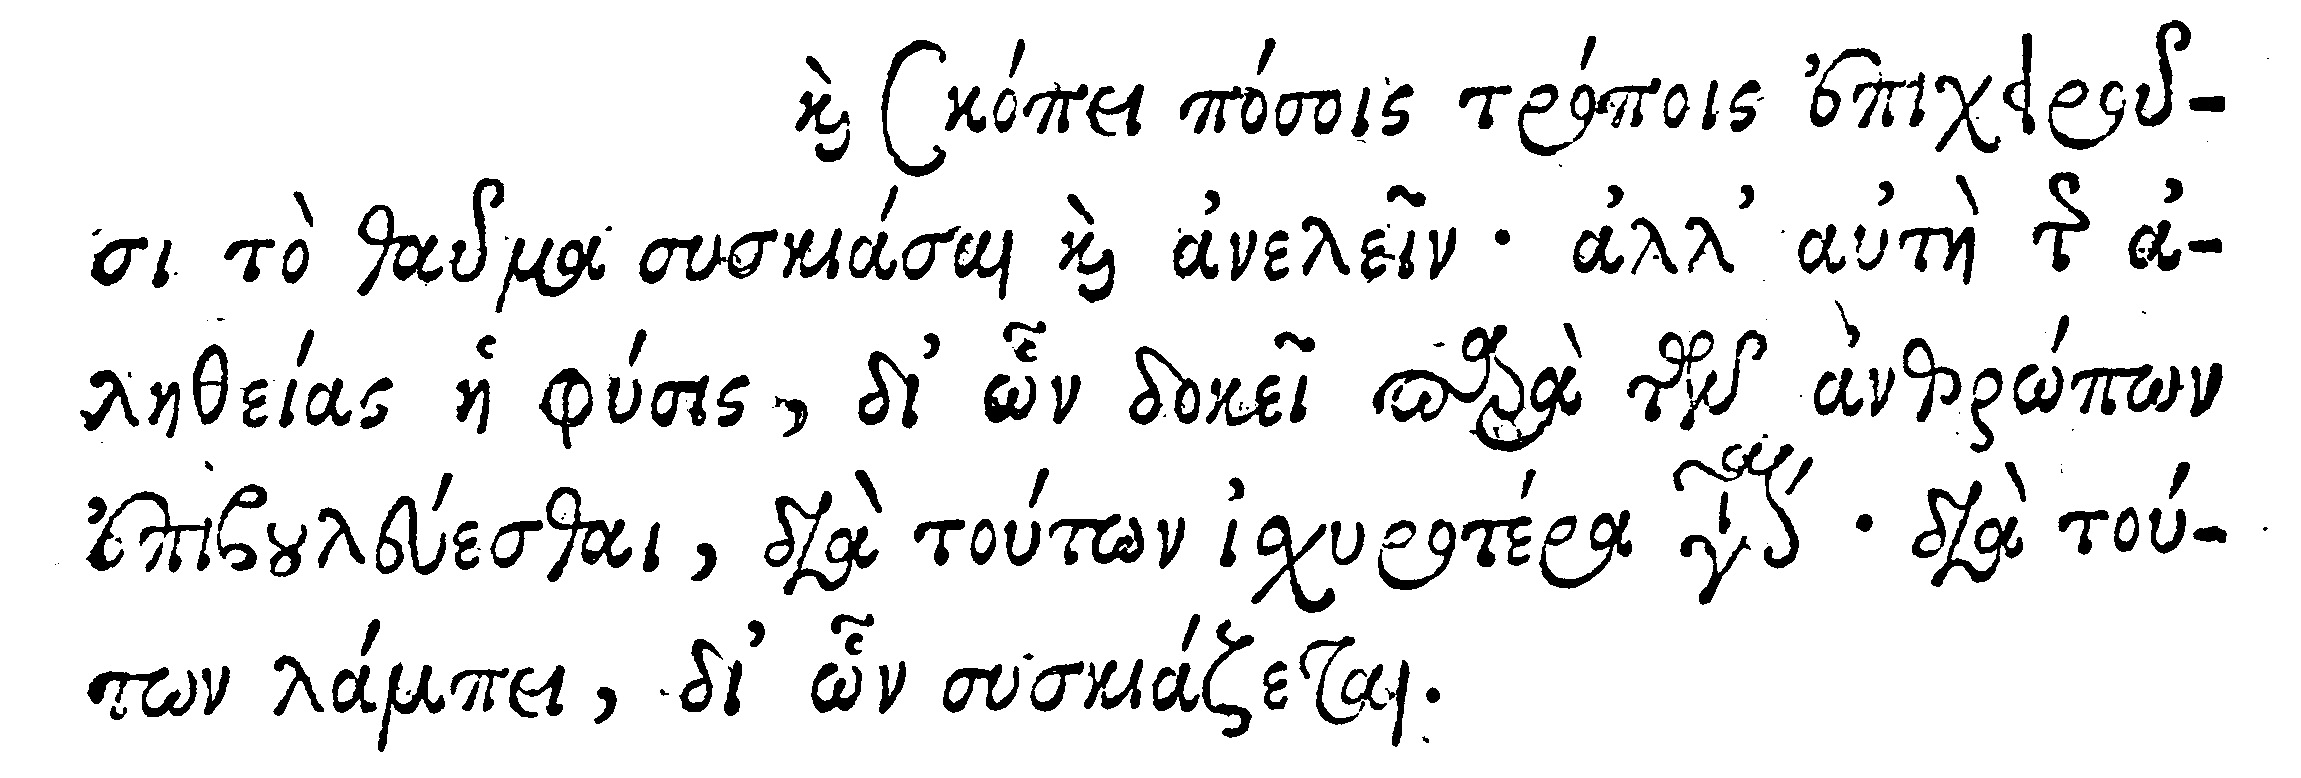 καὶ σκόπει πόσοις τρόποις ἐπιχειροῦ-
σι τὸ θαῦμα συσκιάσαι καὶ ἀνελεῖν· ἀλλ' αὐτὴ τῆς ἀ-
ληθείας ἡ φύσις, δι' ὧν δοκεῖ παρὰ τῶν ἀνθρώπων
ἐπιβουλεύεσθαι, διὰ τούτων ἰσχυροτέρα γίνεται· διὰ τού-
των λάμπει, δι' ὧν συσκιάζεται.